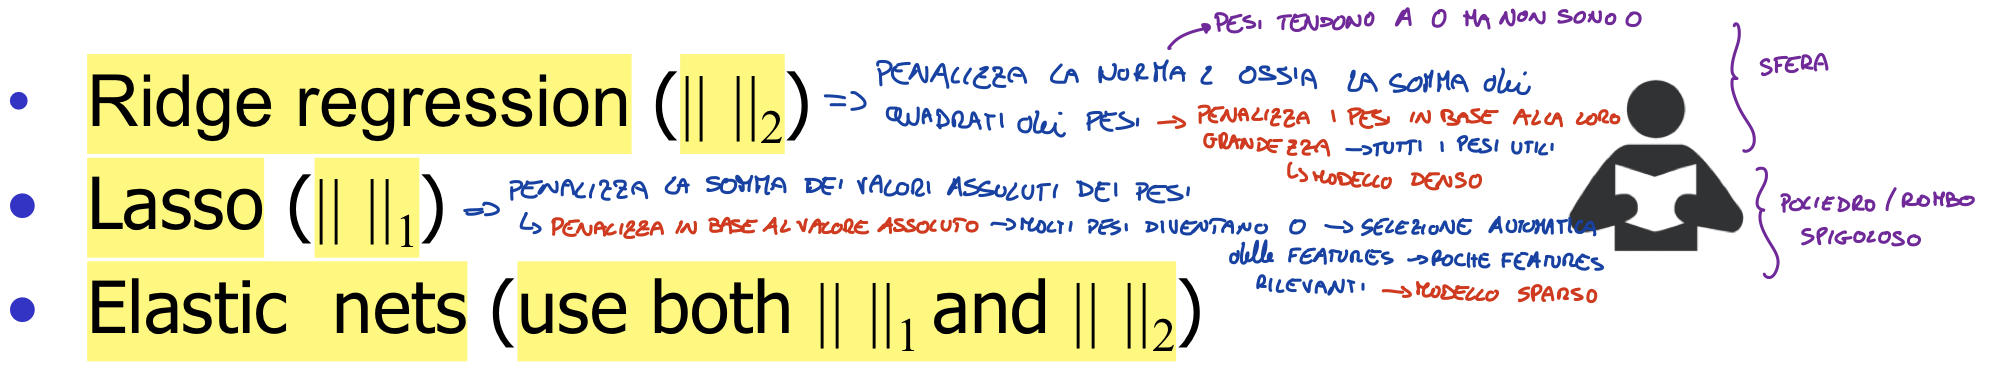 → PESI TENDONO A 0 MA NON SONO 0
• Ridge regression (|| ||₂) => PENALIZZA LA NORMA 2 OSSIA LA SOMMA dei
QUADRATI dei PESI → PENALIZZA I PESI IN BASE ALLA LORO
GRANDEZZA → TUTTI I PESI UTILI
↳ MODELLO DENSO
SFERA
• Lasso (|| ||₁) => PENALIZZA LA SOMMA DEI VALORI ASSOLUTI DEI PESI
↳ PENALIZZA IN BASE AL VALORE ASSOLUTO → MOLTI PESI DIVENTANO 0 → SELEZIONE AUTOMATICA
delle FEATURES → POCHE FEATURES
RILEVANTI → MODELLO SPARSO
POLIEDRO / ROMBO
SPIGOLOSO
• Elastic nets (use both || ||₁ and || ||₂)